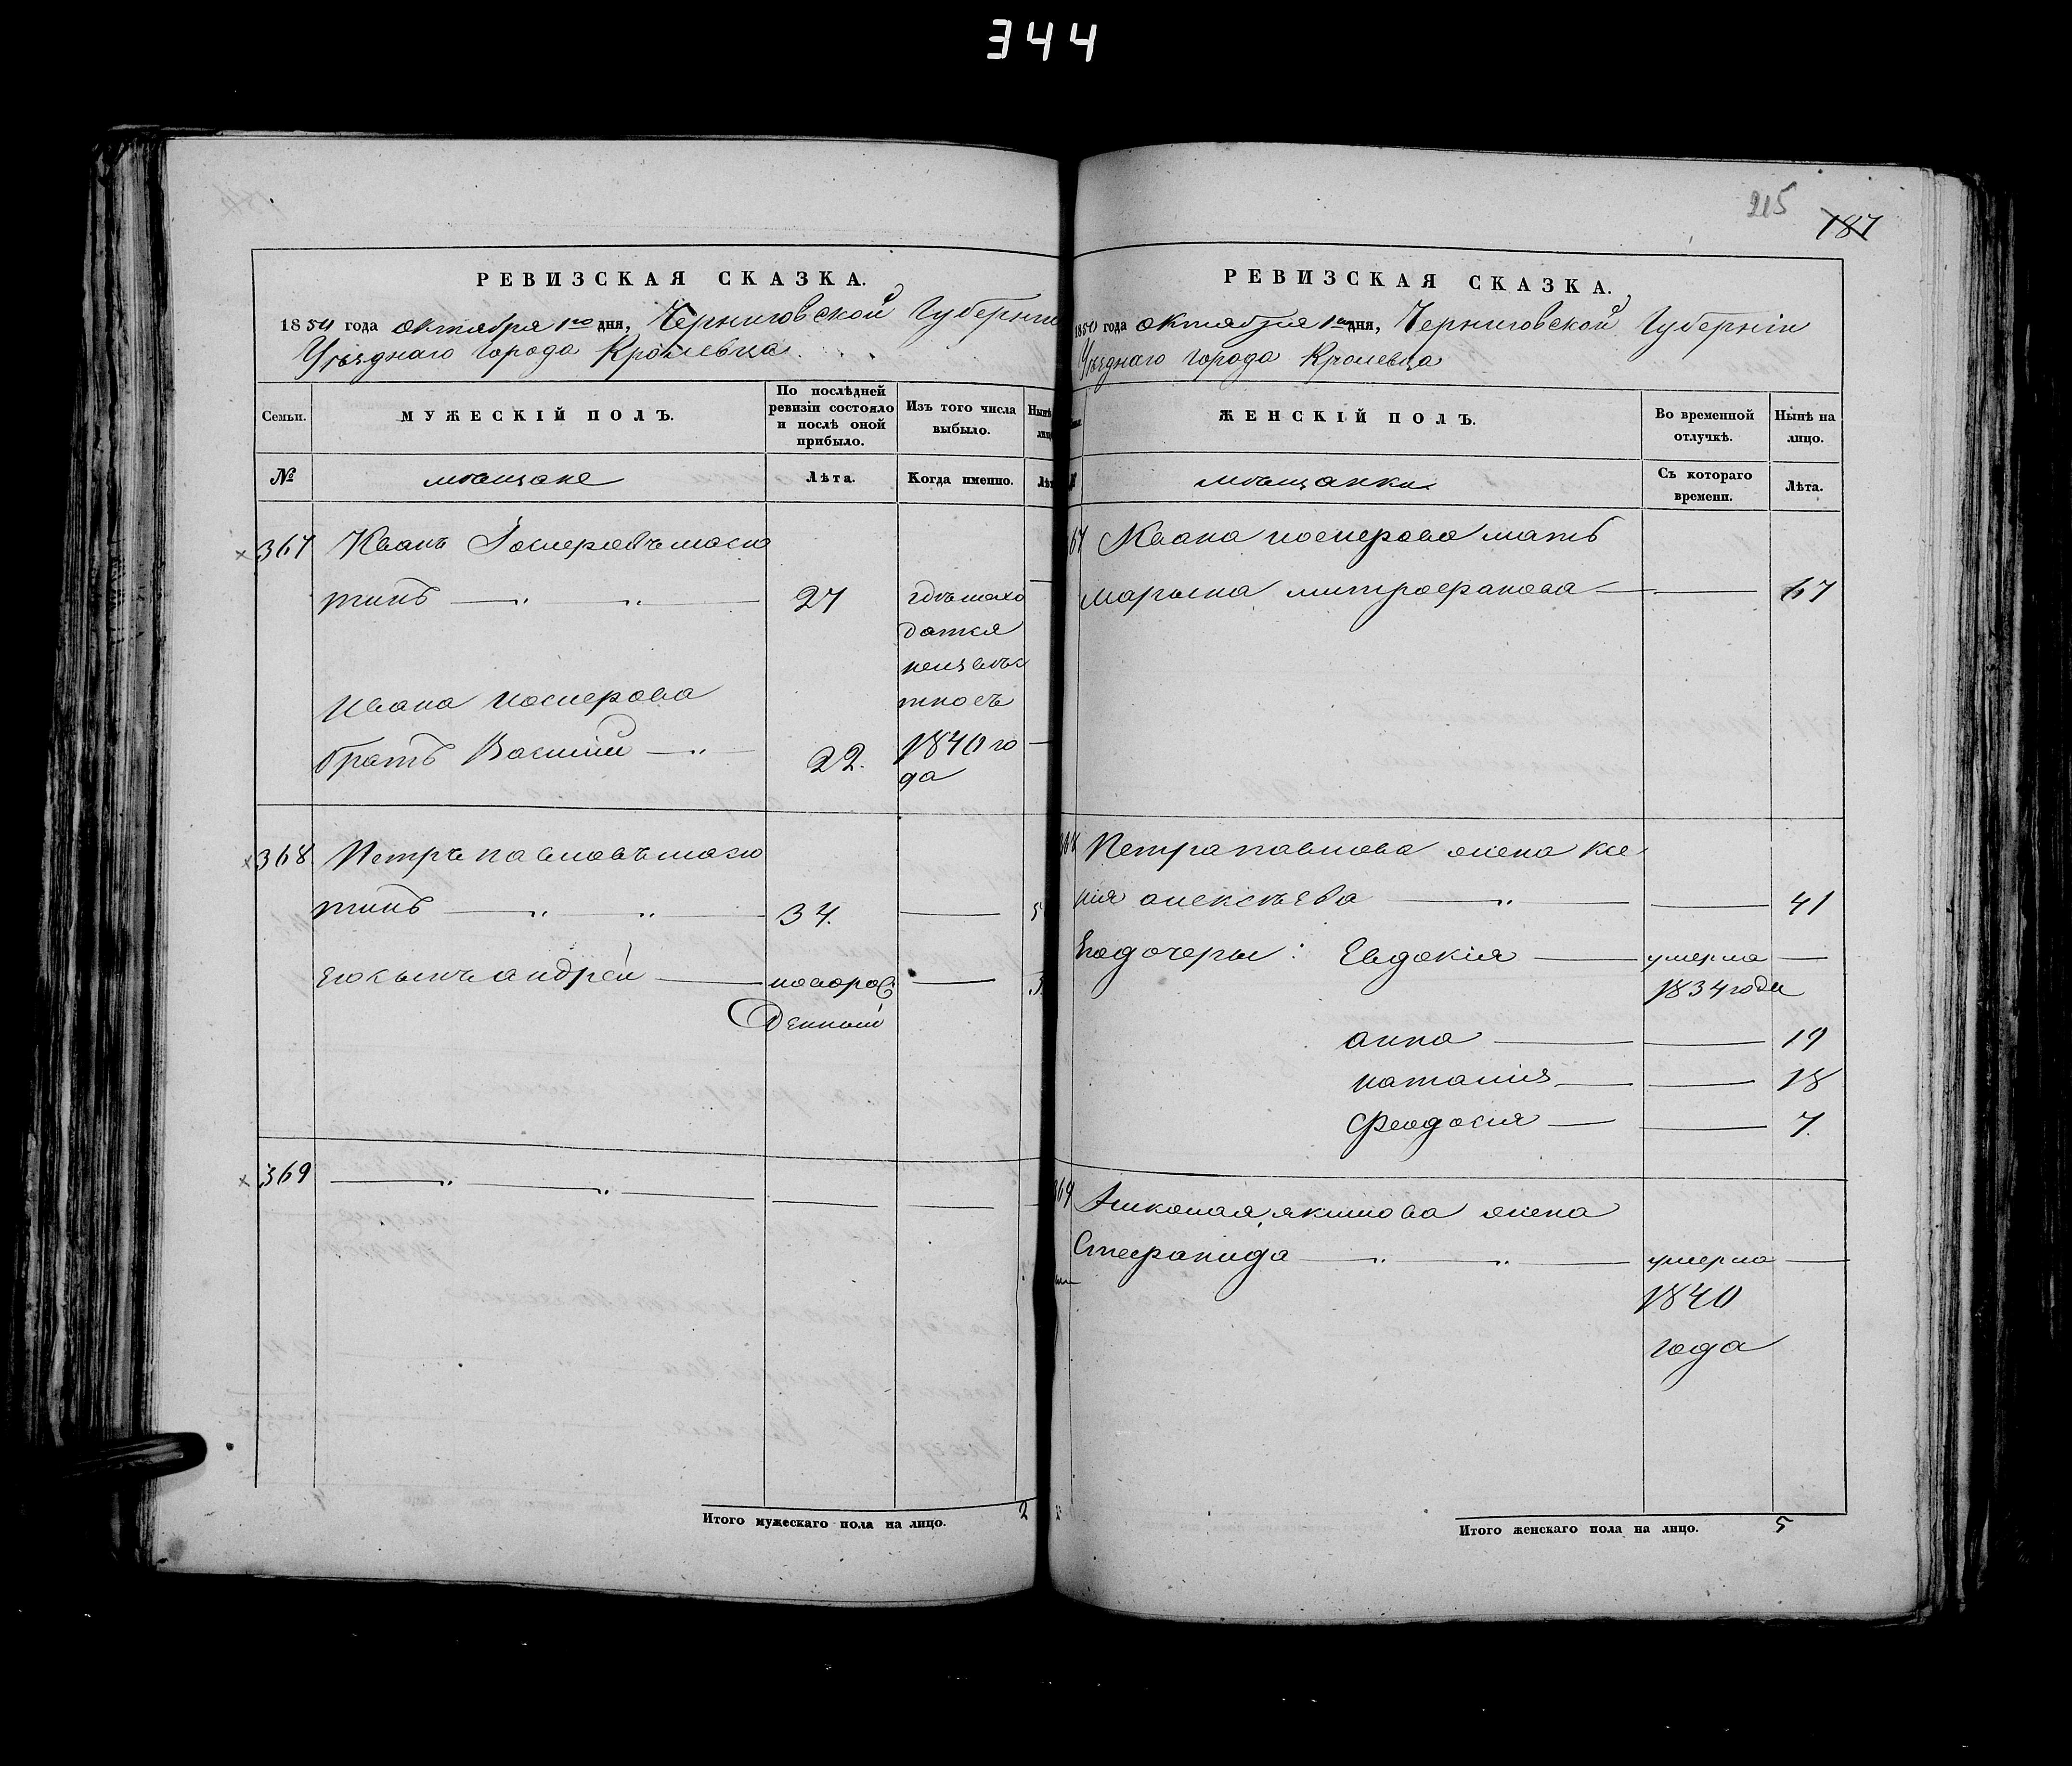 344
РЕВИЗСКАЯ СКАЗКА.
1854 года октября 1го дня, Черниговской Губерніи
Уѣзднаго города Кролевца
Семьи.
МУЖЕСКІЙ ПОЛЪ.
По послѣдней ревизіи состояло и послѣ оной прибыло.
Изъ того числа выбыло.
Нынѣ
лиц
№
мѣщане
Лѣта.
Когда именно.
Лѣт
367 Иванъ
27
Ивана
братъ Василий 22.
1840 го
да
368 Петръ павловъ
34.
5
его сынъ андрей
3
369
Итого мужескаго пола на лицо. 2
215
187
РЕВИЗСКАЯ СКАЗКА.
1850 года октября 1го дня, Черниговской Губерніи
Уѣзднаго города Кролевца
ЖЕНСКІЙ ПОЛЪ.
Во временной отлучкѣ.
Нынѣ на лицо.
мѣщанки
Съ котораго времени.
Лѣта.
67 Ивана мать
митрофанова 67
Петра павлова жена ксе
нія алексѣева 41
Его дочери: Евдокія умерла
1834 года
анна 19
наталия 18
Феодосия 7.
69 якимова жена
Стефанида умерла
1840
года
Итого женскаго пола на лицо. 5